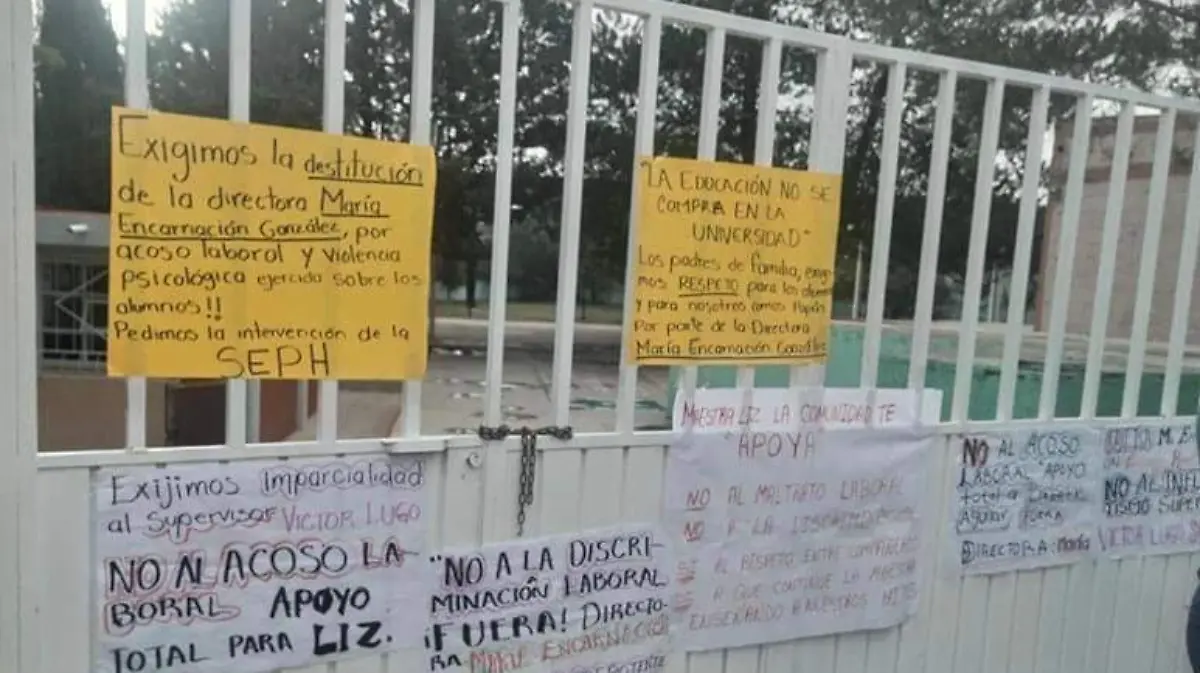 Exigimos la destitución
de la directora María
Encarnación González, por
acoso laboral y violencia
psicológica ejercida sobre los
alumnos!!
Pedimos la intervención de la
SEPH
"LA EDUCACIÓN NO SE
COMPRA EN LA
UNIVERSIDAD"
Los padres de familia, exigi-
mos RESPETO para los
y para nosotros como
Por parte de la Directora
María Encarnación González
Exijimos Imparcialidad
al Supervisor VICTOR LUGO
NO AL ACOSO LA-
BORAL APOYO
TOTAL PARA LIZ.
"NO A LA DISCRI-
MINACIÓN LABORAL
¡FUERA! DIRECTO-
RA MARIA ENCARNACIÓN
MAESTRA LIZ LA COMUNIDAD TE
"APOYA"
NO AL MALTRATO LABORAL
NO A LA
SI AL RESPETO ENTRE COMPAÑEROS
SI A QUE CONTINUE LA MAESTRA
ENSEÑANDO A NUESTROS HIJOS
NO AL ACOSO
LABORAL APOYO
total a
Aguilar FUERA
DIRECTORA: María
NO AL
SUPER
VICTOR LUGO